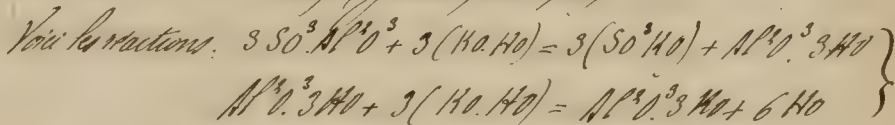 Voici les réactions. 3 SO³.Al²O³ + 3(KO.HO) = 3(SO³KO) + Al²O³.3HO }
Al²O³.3HO + 3(KO.HO) = Al²O³.3KO + 6HO